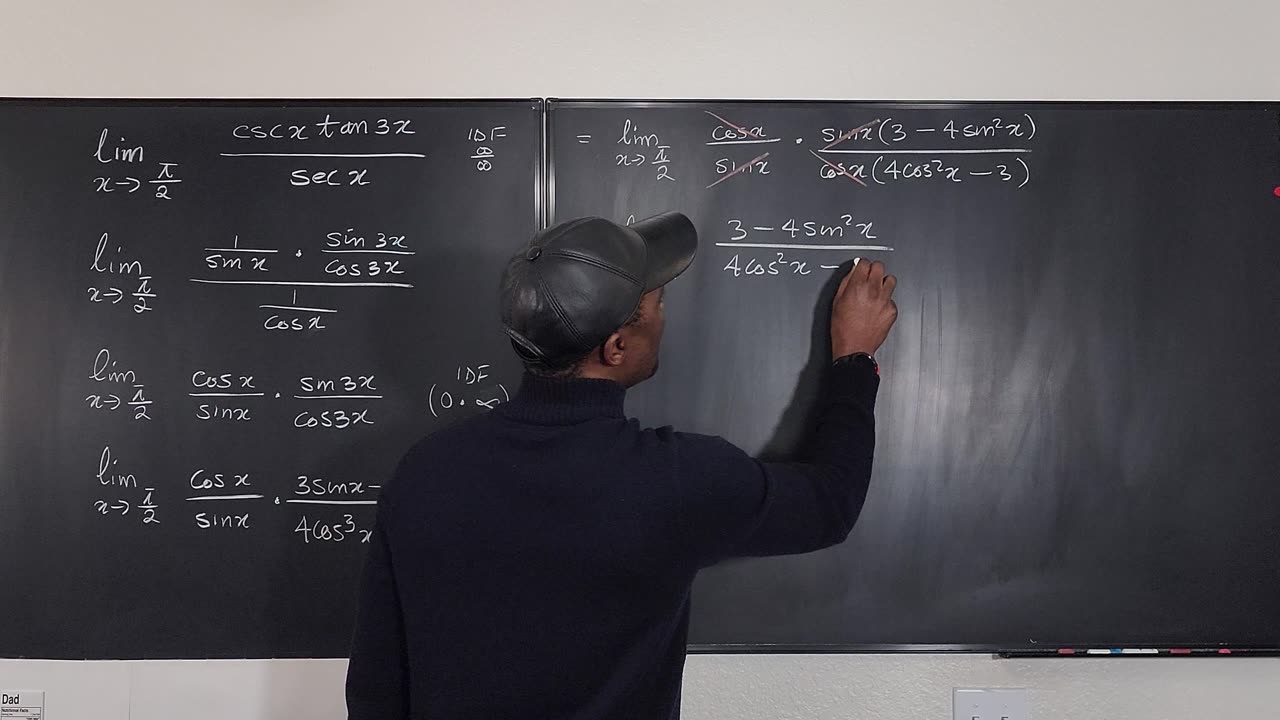 lim x→π/2 csc x tan 3x / sec x IDF ∞/∞
lim x→π/2 (1/sin x · sin 3x/cos 3x) / (1/cos x)
lim x→π/2 cos x/sin x · sin 3x/cos 3x IDF (0·∞)
lim x→π/2 cos x/sin x · 3 sin x − / 4cos³x
= lim x→π/2 cos x/sin x · sin x(3 − 4 sin²x)/cos x(4cos²x − 3)
3 − 4 sin²x / 4cos²x −
Dad
Nutritional Facts